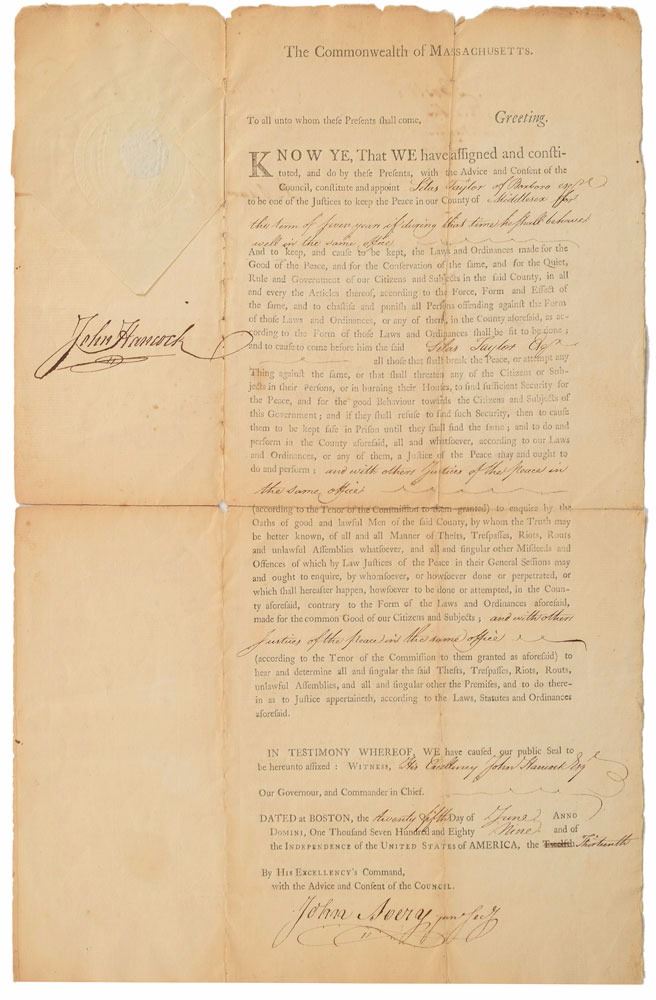 The Commonwealth of MASSACHUSETTS.
To all unto whom theſe Preſents ſhall come,
Greeting.
KNOW YE, That WE have aſſigned and conſti-
tuted, and do by theſe Preſents, with the Advice and Conſent of the
Council, conſtitute and appoint Silas Taylor of Boxboro esqr
to be one of the Juſtices to keep the Peace in our County of Middlesex for
the term of seven years if during that time he shall behave
well in the same office
And to keep, and cauſe to be kept, the Laws and Ordinances made for the
Good of the Peace, and for the Conſervation of the ſame, and for the Quiet,
Rule and Government of our Citizens and Subjects in the ſaid County, in all
and every the Articles thereof, according to the Force, Form and Effect of
the ſame, and to chaſtiſe and puniſh all Perſons offending againſt the Form
of thoſe Laws and Ordinances, or any of them, in the County aforeſaid, as ac-
cording to the Form of thoſe Laws and Ordinances ſhall be fit to be done;
John Hancock
and to cauſe to come before him the ſaid Silas Taylor Esqr
all thoſe that ſhall break the Peace, or attempt any
Thing againſt the ſame, or that ſhall threaten any of the Citizens or Sub-
jects in their Perſons, or in burning their Houſes, to find ſufficient Security for
the Peace, and for the good Behaviour towards the Citizens and Subjects of
this Government; and if they ſhall refuſe to find ſuch Security, then to cauſe
them to be kept ſafe in Priſon until they ſhall find the ſame; and to do and
perform in the County aforeſaid, all and whatſoever, according to our Laws
and Ordinances, or any of them, a Juſtice of the Peace may and ought to
do and perform; and with others Justices of the peace in
the same office
(according to the Tenor of the Commiſſion to them granted) to enquire by the
Oaths of good and lawful Men of the ſaid County, by whom the Truth may
be better known, of all and all Manner of Thefts, Treſpaſſes, Riots, Routs
and unlawful Aſſemblies whatſoever, and all and ſingular other Miſdeeds and
Offences of which by Law Juſtices of the Peace in their General Seſſions may
and ought to enquire, by whomſoever, or howſoever done or perpetrated, or
which ſhall hereafter happen, howſoever to be done or attempted, in the Coun-
ty aforeſaid, contrary to the Form of the Laws and Ordinances aforeſaid,
made for the common Good of our Citizens and Subjects; and with others
Justices of the peace in the same office
(according to the Tenor of the Commiſſion to them granted as aforeſaid) to
hear and determine all and ſingular the ſaid Thefts, Treſpaſſes, Riots, Routs,
unlawful Aſſemblies, and all and ſingular other the Premiſes, and to do there-
in as to Juſtice appertaineth, according to the Laws, Statutes and Ordinances
aforeſaid.
IN TESTIMONY WHEREOF, WE have cauſed our public Seal to
be hereunto affixed: WITNESS, His Excellency John Hancock Esqr
Our Governour, and Commander in Chief.
DATED at BOSTON, the twenty fifth Day of June ANNO
DOMINI, One Thouſand Seven Hundred and Eighty Nine and of
the INDEPENDENCE of the UNITED STATES of AMERICA, the Twelfth Thirteenth
By HIS EXCELLENCY's Command,
with the Advice and Conſent of the COUNCIL.
John Avery junr Secy